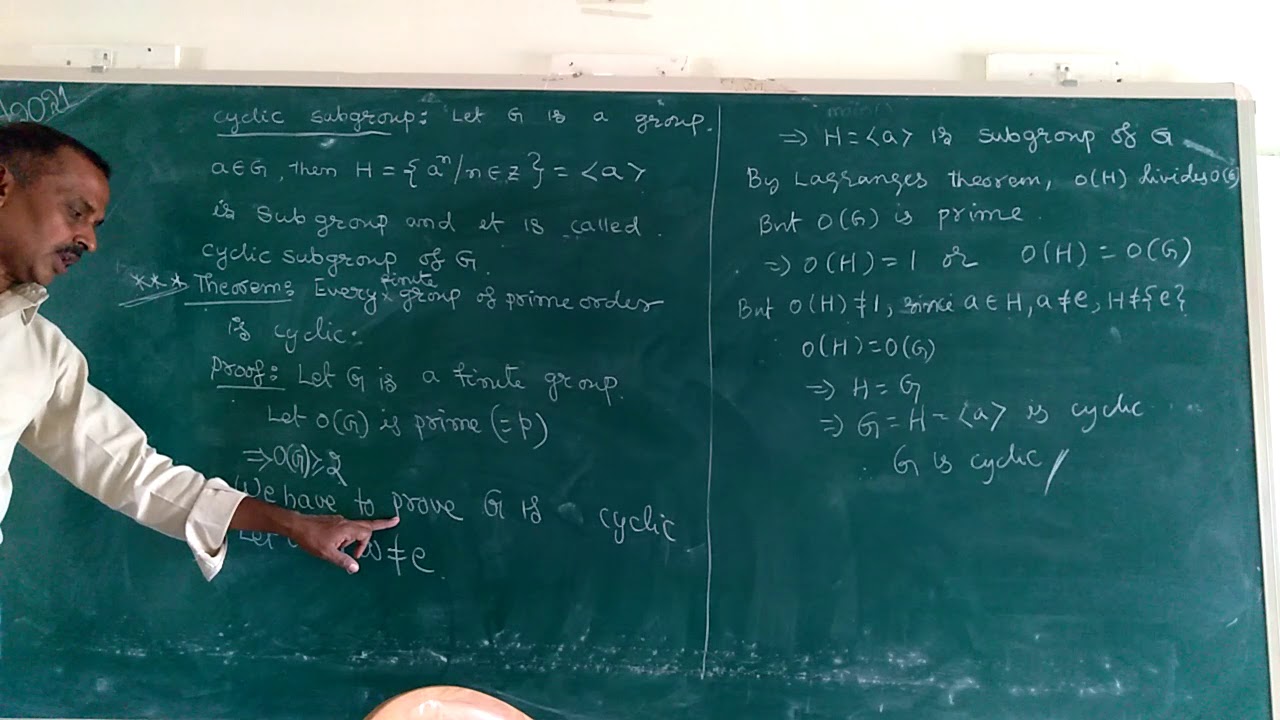 2021
cyclic subgroup: Let G is a group.
a∈G, then H = {aⁿ/n∈z} = <a>
is Subgroup and et is called
cyclic subgroup of G.
*** Theorem: Every finite group of prime order
is cyclic.
Proof: Let G is a finite group.
Let O(G) is prime (=p)
⇒O(G)≥2
We have to prove G is cyclic
Let ≠e
⇒ H = <a> is subgroup of G
By Lagranges theorem, O(H) divides O(G)
But O(G) is prime.
⇒ O(H) = 1 or O(H) = O(G)
But O(H) ≠ 1, since a∈H, a≠e, H≠{e}
O(H)=O(G)
⇒ H = G
⇒ G = H = <a> is cyclic
G is cyclic